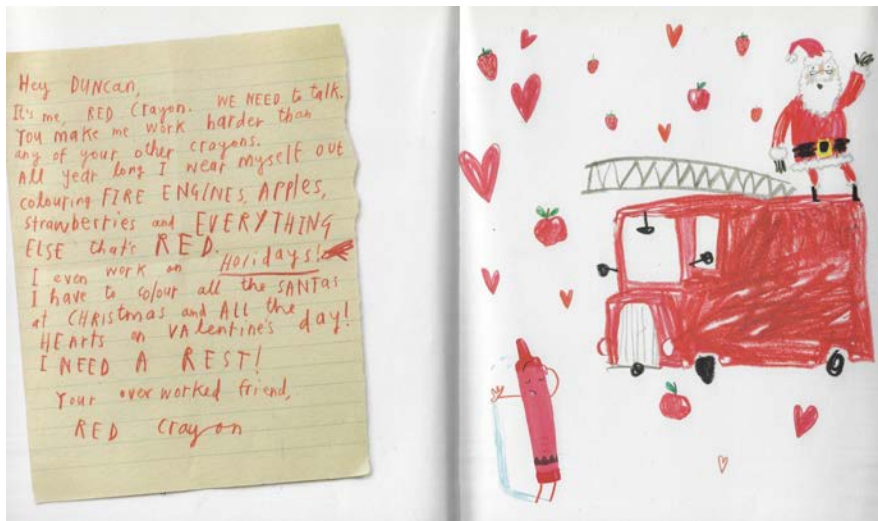 Hey DUNCAN,
It's me, RED Crayon. WE NEED to talk.
You make me work harder than
any of your other crayons.
All year long I wear myself out
colouring FIRE ENGINES, Apples,
strawberries and EVERYTHING
ELSE that's RED.
I even work on Holidays!
I have to colour all the SANTas
at CHRistmas and ALL the
HEArts on VAlentine's day!
I NEED A REST!
Your overworked friend,
RED Crayon